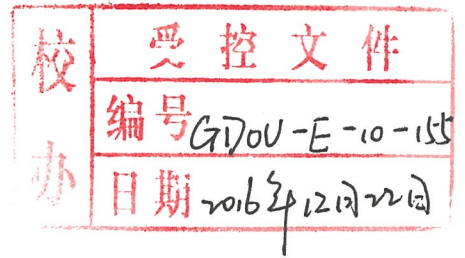 校办
受控文件
编号GDOU-E-10-155
日期2016年12月22日